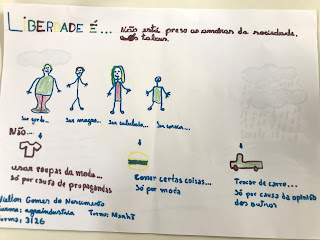 LIBERDADE É... Não está preso as amarras da sociedade,
aos tabus.
Ser gordo... Ser magro... Ser cabeluda... Ser careca...
Não...
usar roupas da moda...
Só por causa de propagandas
Comer certas coisas...
Só por moda
Trocar de carro...
Só por causa da opinião
dos outros
Gomes do Nascimento
agroindústria Turno: Manhã
3126